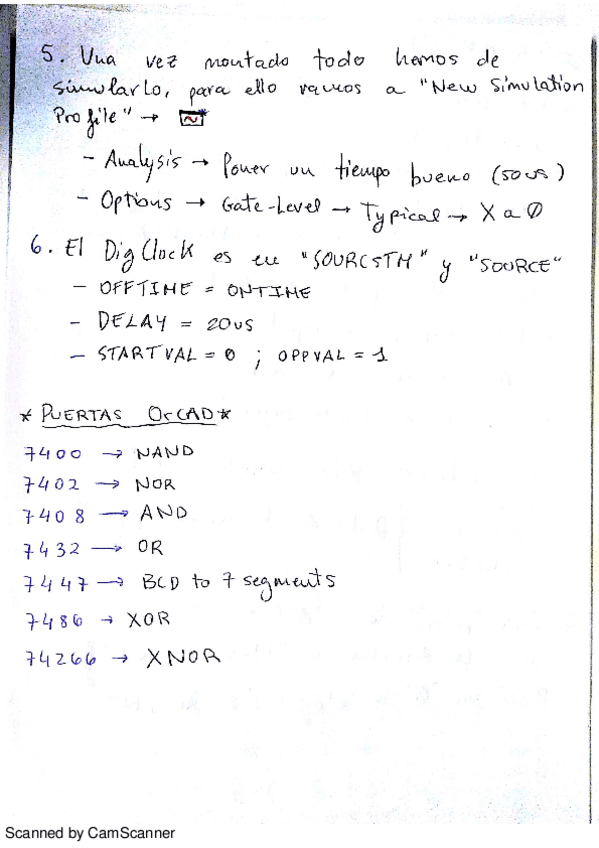 5. Una vez montado todo hemos de
simularlo, para ello vamos a "New Simulation
Profile" →
- Analysis → Poner un tiempo bueno (50us)
- Options → Gate-Level → Typical → X a 0
6. El DigClock es en "SOURCSTM" y "SOURCE"
- OFFTIME = ONTIME
- DELAY = 20us
- STARTVAL = 0 ; OPPVAL = 1
* PUERTAS OrCAD *
7400 → NAND
7402 → NOR
7408 → AND
7432 → OR
7447 → BCD to 7 segments
7486 → XOR
74266 → XNOR
Scanned by CamScanner